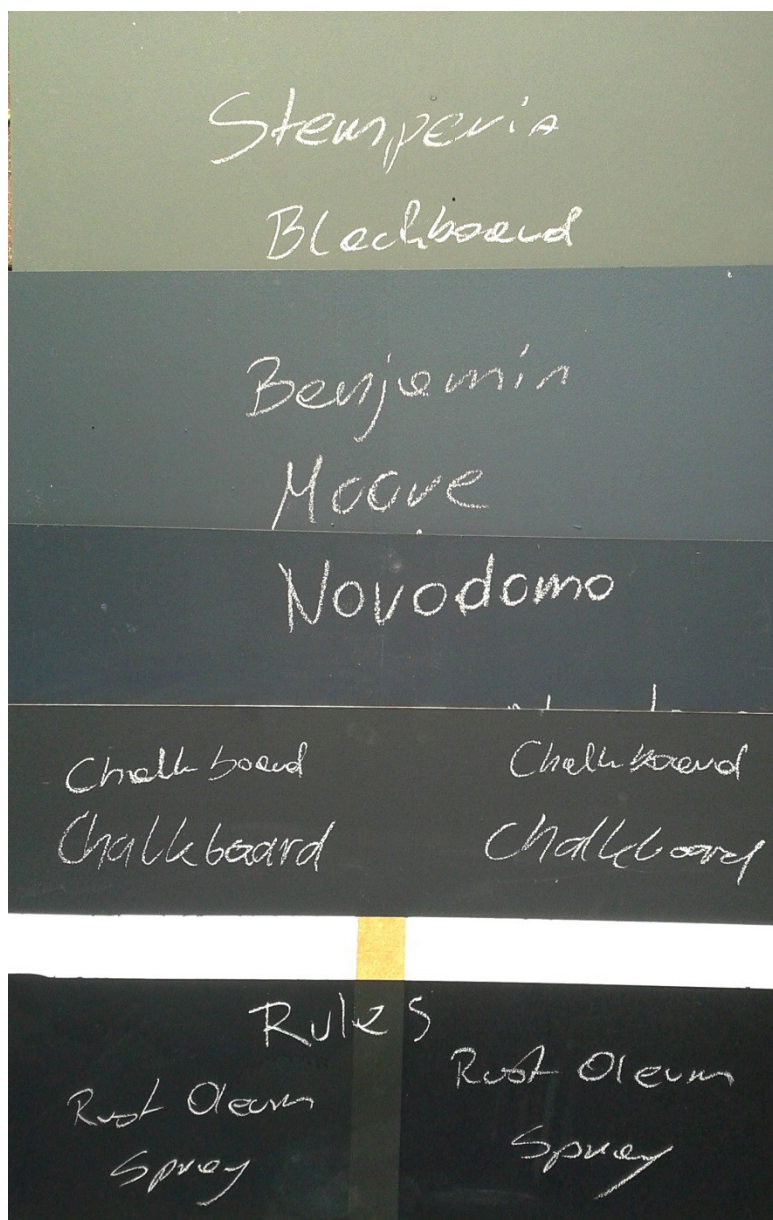 Stemperia
Blackboard
Benjamin
Moore
Novodomo
Chalkboard Chalkboard
Chalkboard Chalkboard
Rules
Rust Oleum Rust Oleum
Spray Spray